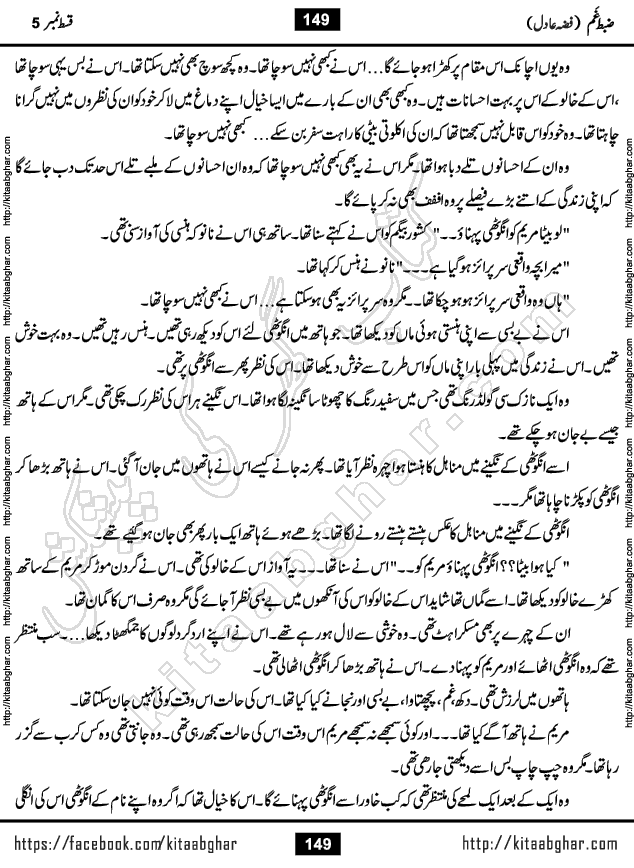 ضبطِ غم (فضہ عادل)
149
قسط نمبر 5
وہ یوں اچانک اس مقام پر کھڑا ہو جائے گا... اس نے کبھی نہیں سوچا تھا۔ وہ کچھ سوچ بھی نہیں سکتا تھا۔ اس نے بس یہی سوچا تھا
،اس کے خالو کے اس پر بہت احسانات ہیں۔ وہ کبھی بھی ان کے بارے میں ایسا خیال اپنے دماغ میں لا کر خود کو ان کی نظروں میں نہیں گرانا
چاہتا تھا۔ وہ خود کو اس قابل نہیں سمجھتا تھا کہ ان کی اکلوتی بیٹی کا راہت سفر بن سکے... کبھی نہیں سوچا تھا۔
وہ ان کے احسانوں تلے دبا ہوا تھا۔ مگر اس نے یہ بھی کبھی نہیں سوچا تھا کہ وہ ان احسانوں کے ملبے تلے اس حد تک دب جائے گا
کہ اپنی زندگی کے اتنے بڑے فیصلے پر وہ اففف بھی نہ کر پائے گا۔
"لو بیٹا مریم کو انگوٹھی پہناؤ۔۔" کشور بیگم کو اس نے کہتے سنا تھا۔ ساتھ ہی اس نے نانو کہ ہنسی کی آواز سنی تھی۔
"میرا بچہ واقعی سرپرائز ہو گیا ہے۔۔۔" نانو نے ہنس کر کہا تھا۔
"ہاں وہ واقعی سرپرائز ہو چکا تھا۔۔ مگر وہ سرپرائز یہ بھی ہو سکتا ہے... اس نے کبھی نہیں سوچا تھا۔
اس نے بے بسی سے اپنی ہنستی ہوئی ماں کو دیکھا تھا۔ جو ہاتھ میں انگوٹھی لئے اس کو دیکھ رہی تھیں۔ ہنس رہیں تھیں۔ وہ بہت خوش
تھیں۔ اس نے زندگی میں پہلی بار اپنی ماں کو اس طرح سے خوش دیکھا تھا۔ اس کی نظر پھر سے انگوٹھی پر تھی۔
وہ ایک نازک سی گولڈ رنگ تھی جس میں سفید رنگ کا چھوٹا سا نگینہ لگا ہوا تھا۔ اس نگینے پر اس کی نظر رک چکی تھی۔ مگر اس کے ہاتھ
جیسے بے جان ہو چکے تھے۔
اسے انگوٹھی کے نگینے میں مناہل کا ہنستا ہوا چہرہ نظر آیا تھا۔ پھر نہ جانے کیسے اس نے ہاتھوں میں جان آگئی۔ اس نے ہاتھ بڑھا کر
انگوٹھی کو پکڑنا چاہا تھا مگر۔۔۔
انگوٹھی کے نگینے میں مناہل کا عکس ہنستے ہنستے رونے لگا تھا۔ بڑھے ہوئے ہاتھ ایک بار پھر بھی جان ہو گیئے تھے۔
"کیا ہوا بیٹا؟؟ انگوٹھی پہناؤ مریم کو۔۔" اس نے سنا تھا۔۔۔ یہ آواز اس کے خالو کی تھی۔ اس نے گردن موڑ کر مریم کے ساتھ
کھڑے خالو کو دیکھا تھا۔ اسے گماں تھا شاید اس کے خالو کو اس کی آنکھوں میں بے بسی نظر آ جائے گی مگر وہ صرف اس کا گمان تھا۔
ان کے چہرے پر بھی مسکراہٹ تھی۔ وہ خوشی سے لال ہو رہے تھے۔ اس نے اپنے ارد گرد لوگوں کا جمگھٹا دیکھا....۔ سب منتظر
تھے کہ وہ انگوٹھی اٹھائے اور مریم کو پہنا دے۔ اس نے ہاتھ بڑھا کر انگوٹھی اٹھا لی تھی۔
ہاتھوں میں لرزش تھی۔ دکھ، غم، پچھتاوا، بے بسی اور نجانے کیا کیا تھا۔ اس کی حالت اس وقت کوئی نہیں جان سکتا تھا۔
مریم نے ہاتھ آگے کیا تھا۔۔۔ اور کوئی سمجھے نہ سمجھے مریم اس وقت اس کی حالت سمجھ رہی تھی۔ وہ جانتی تھی وہ کس کرب سے گزر
رہا تھا۔ مگر وہ چپ چاپ بس اسے دیکھتی جا رھی تھی۔
وہ ایک کے بعد ایک لمحے کی منتظر تھی کہ کب خاور اسے انگوٹھی پہنائے گا۔ اس کا خیال تھا کہ اگر وہ اپنے نام کے انگوٹھی اس کی انگلی
https://facebook.com/kitaabghar
149
http://kitaabghar.com
http://kitaabghar.com http://kitaabghar.com http://kitaabghar.com http://kitaabghar.com http://kitaabghar.com http://kitaabghar.com
http://kitaabghar.com http://kitaabghar.com http://kitaabghar.com http://kitaabghar.com http://kitaabghar.com http://kitaabghar.com
کتاب گھر کی پیشکش
kitaabghar.com